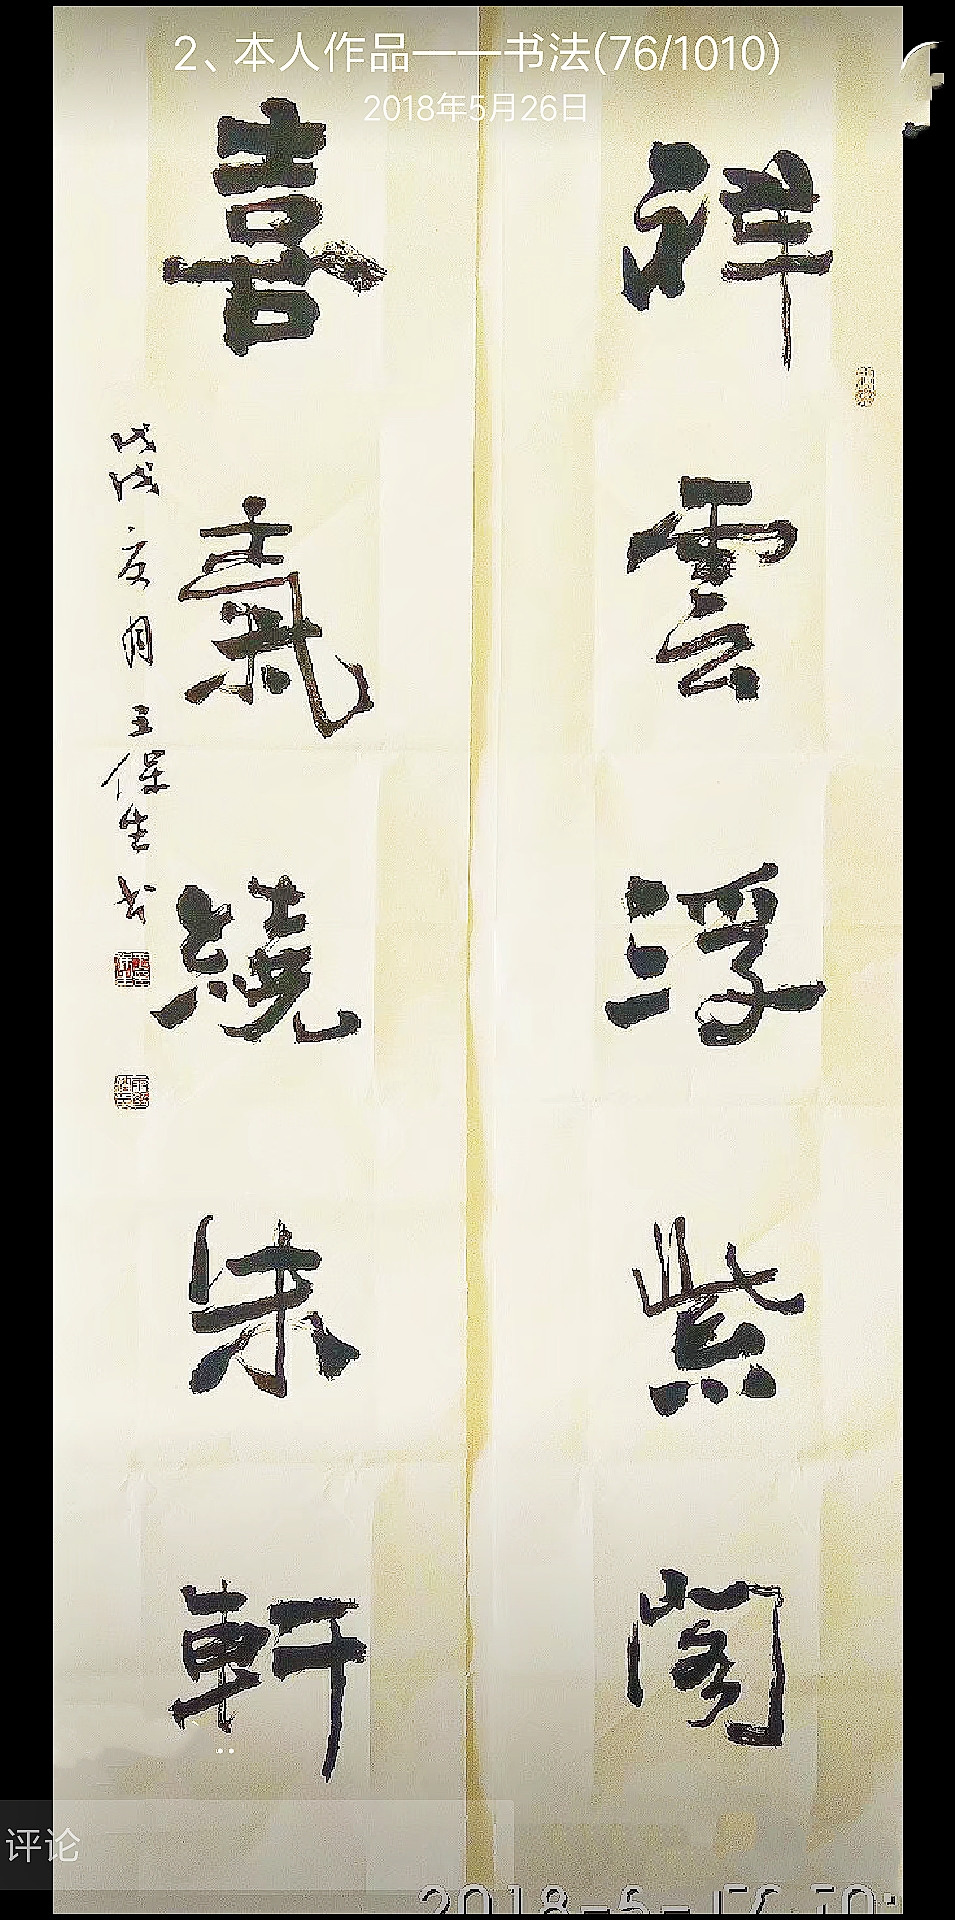 2、本人作品——书法(76/1010)
2018年5月26日
祥雲浮紫阁
喜氣繞朱軒
戊戌
月王保生书
评论